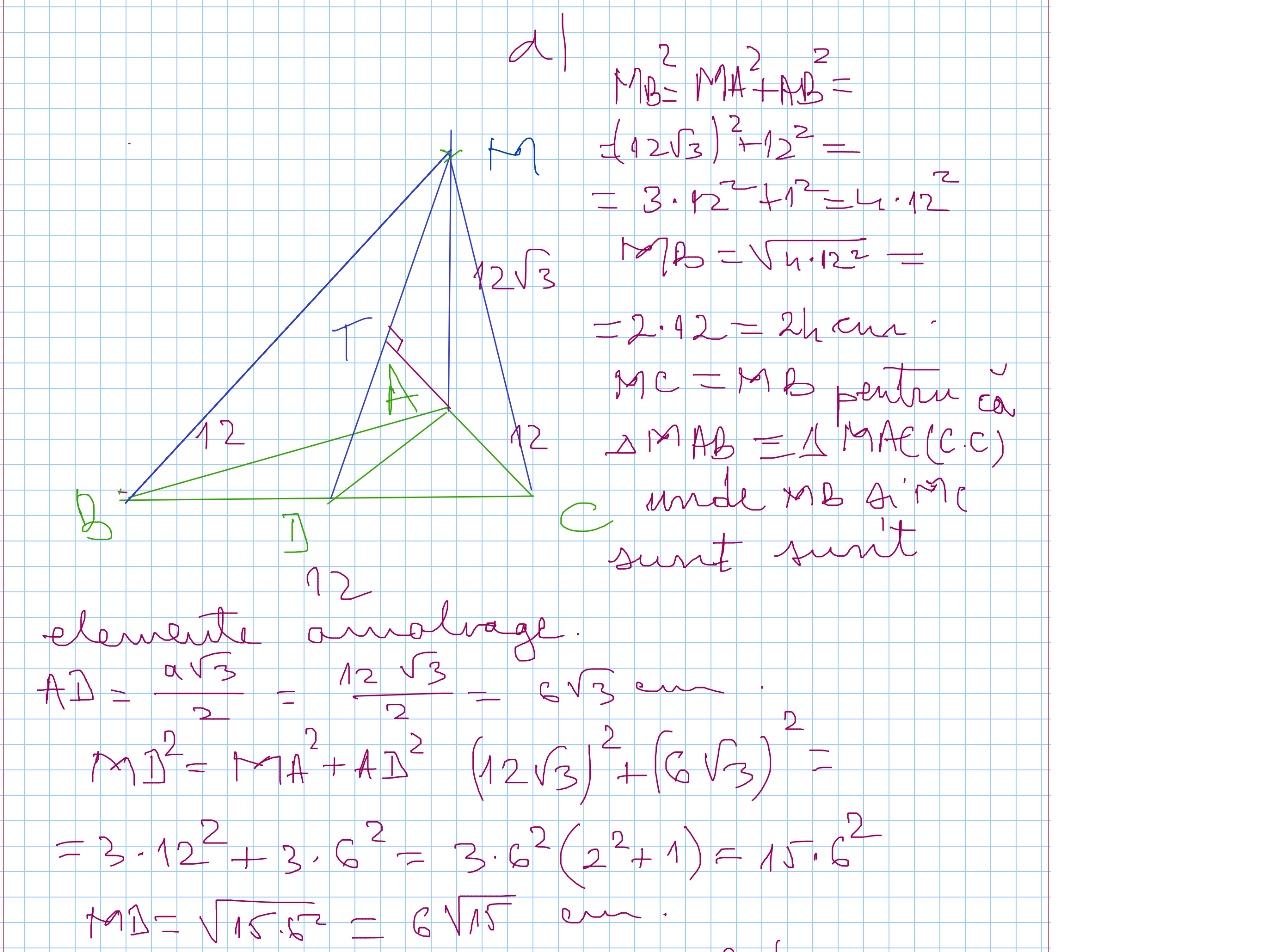 a)
MB²= MA²+AB²=
=(12√3)²+12²=
= 3·12²+1²=4·12²
MB=√4·12² =
=2·12=24 cm.
MC=MB pentru că
ΔMAB≡ΔMAC(C.C)
unde MB și MC
sunt sunt
M
12√3
T
A
12
12
B
D
C
12
elemente omoloage.
AD = a√3/2 = 12√3/2 = 6√3 cm.
MD²= MA²+AD² (12√3)²+(6√3)²=
=3·12²+3·6²= 3·6²(2²+1)=15·6²
MD=√15·6² = 6√15 cm.